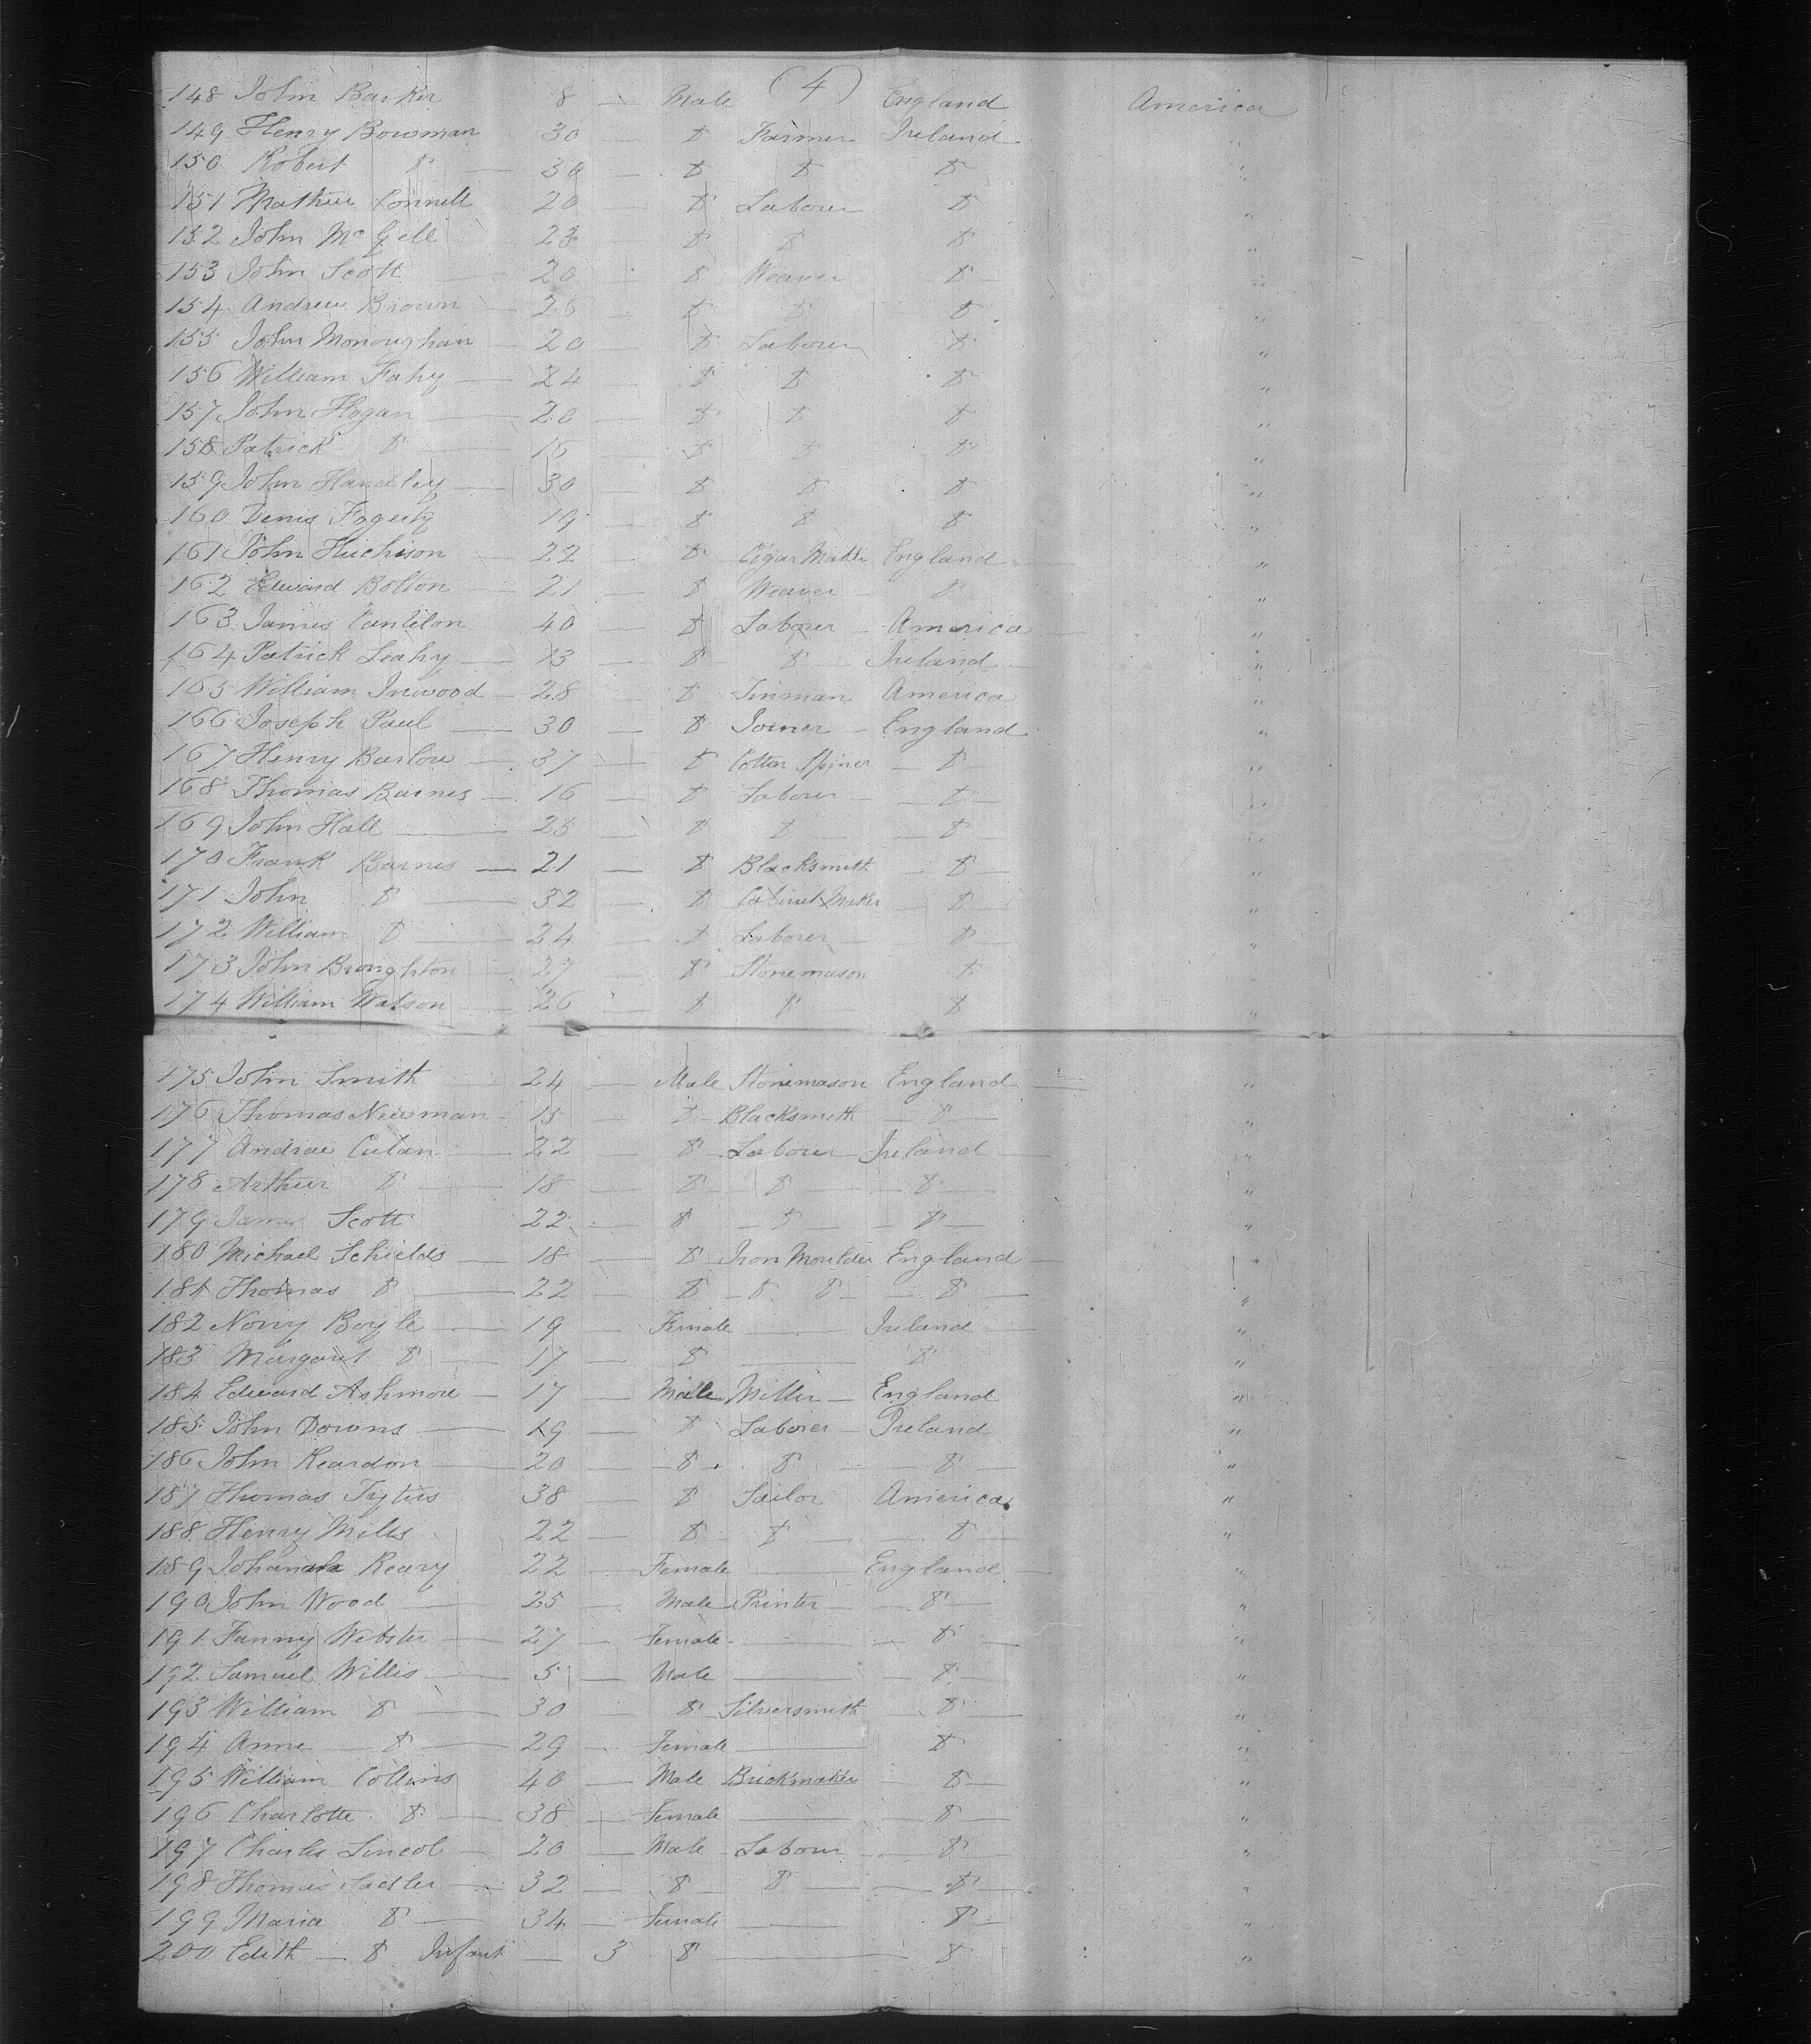 (4)
148 John Barker 8 — Male England America
149 Henry Bowman 30 — " Farmer Ireland "
150 Robert " — 30 — " " " "
151 Mathew Connell 20 — " Laborer " "
152 John McGell 23 — " " " "
153 John Scott — 20 — " Weaver " "
154 Andrew Brown — 26 — " " " "
155 John Monoughan — 20 — " Laborer " "
156 William Fahy — 24 — " " " "
157 John Hogan — 20 — " " " "
158 Patrick " — 16 — " " " "
159 John Handley — 30 — " " " "
160 Denis Fogerty 19 — " " " "
161 John Huchison — 22 — " Cigar Maker England — "
162 Edward Bolton — 21 — " Weaver — " "
163 James Cantilon 40 — " Laborer — America — "
164 Patrick Leahy — 13 — " " — Ireland — "
165 William Inwood — 28 — " Tinman America "
166 Joseph Paul — 30 — " Joiner — England "
167 Henry Barlow — 37 — " Cotton Spiner — " — "
168 Thomas Barnes — 16 — " Laborer — " — "
169 John Hall — 25 — " " — " — "
170 Frank Barnes — 21 — " Blacksmith — " — "
171 John " — 32 — " Cabinet Maker — " — "
172 William " — 24 — " Laborer — " "
173 John Broughton — 27 — " Stonemason " "
174 William Watson — 26 — " " " "
175 John Smith — 24 — Male Stonemason England — "
176 Thomas Newman — 15 — " Blacksmith — " — "
177 Andrew Culan — 22 — " Laborer — Ireland — "
178 Arthur " — 18 — " — " — " — "
179 James Scott 22 — " — " — " — "
180 Michael Schields — 18 — " Iron Moulder England — "
181 Thomas " — 22 — " — " " — " — "
182 Nony Boyle — 19 — Female — Ireland — "
183 Margaret " — 17 — " — " "
184 Edward Ashmore — 17 — Male Miller — England "
185 John Downs — 19 — " Laborer — Ireland "
186 John Reardon — 20 — " " — " — "
187 Thomas 38 — " Sailor America "
188 Henry Mills 22 — " " — " "
189 Johanah Keary 22 — Female — England — "
190 John Wood — 25 — Male Printer — " — "
191 Fanny Webster — 27 — Female — " — "
192 Samuel Willis — 5 — Male — " — "
193 William " — 30 — " Silversmith — " — "
194 Anne — " — 29 — Female — " "
195 William Collins 40 — Male Brickmaker — " — "
196 Charlotte " — 38 — Female — " — "
197 Charles Lincol — 20 — Male Labour — " — "
198 Thomas Sadler — 32 — " — " — " — "
199 Maria " — 34 — Female — " — "
200 Edith — " Infant — 3 " — " "